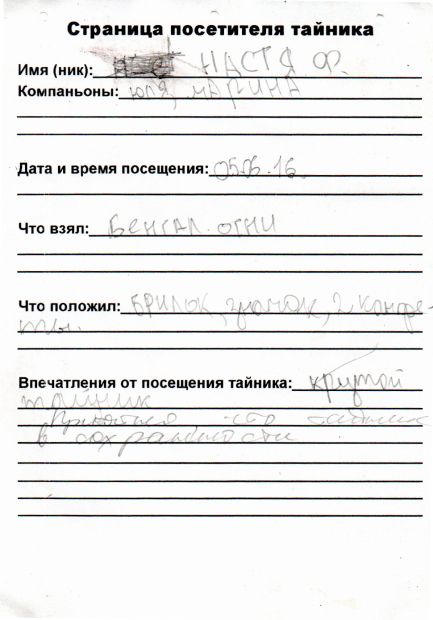 Страница посетителя тайника
Имя (ник): НАСТЯ Ф.
Компаньоны: ЮЛЯ, МАРИНА
Дата и время посещения: 05.06.16
Что взял: БЕНГАЛ. ОГНИ
Что положил: БРИЛОК, значок, 2 конфе-
ты.
Впечатления от посещения тайника: крутой
тайник
что тайник
в сохранности